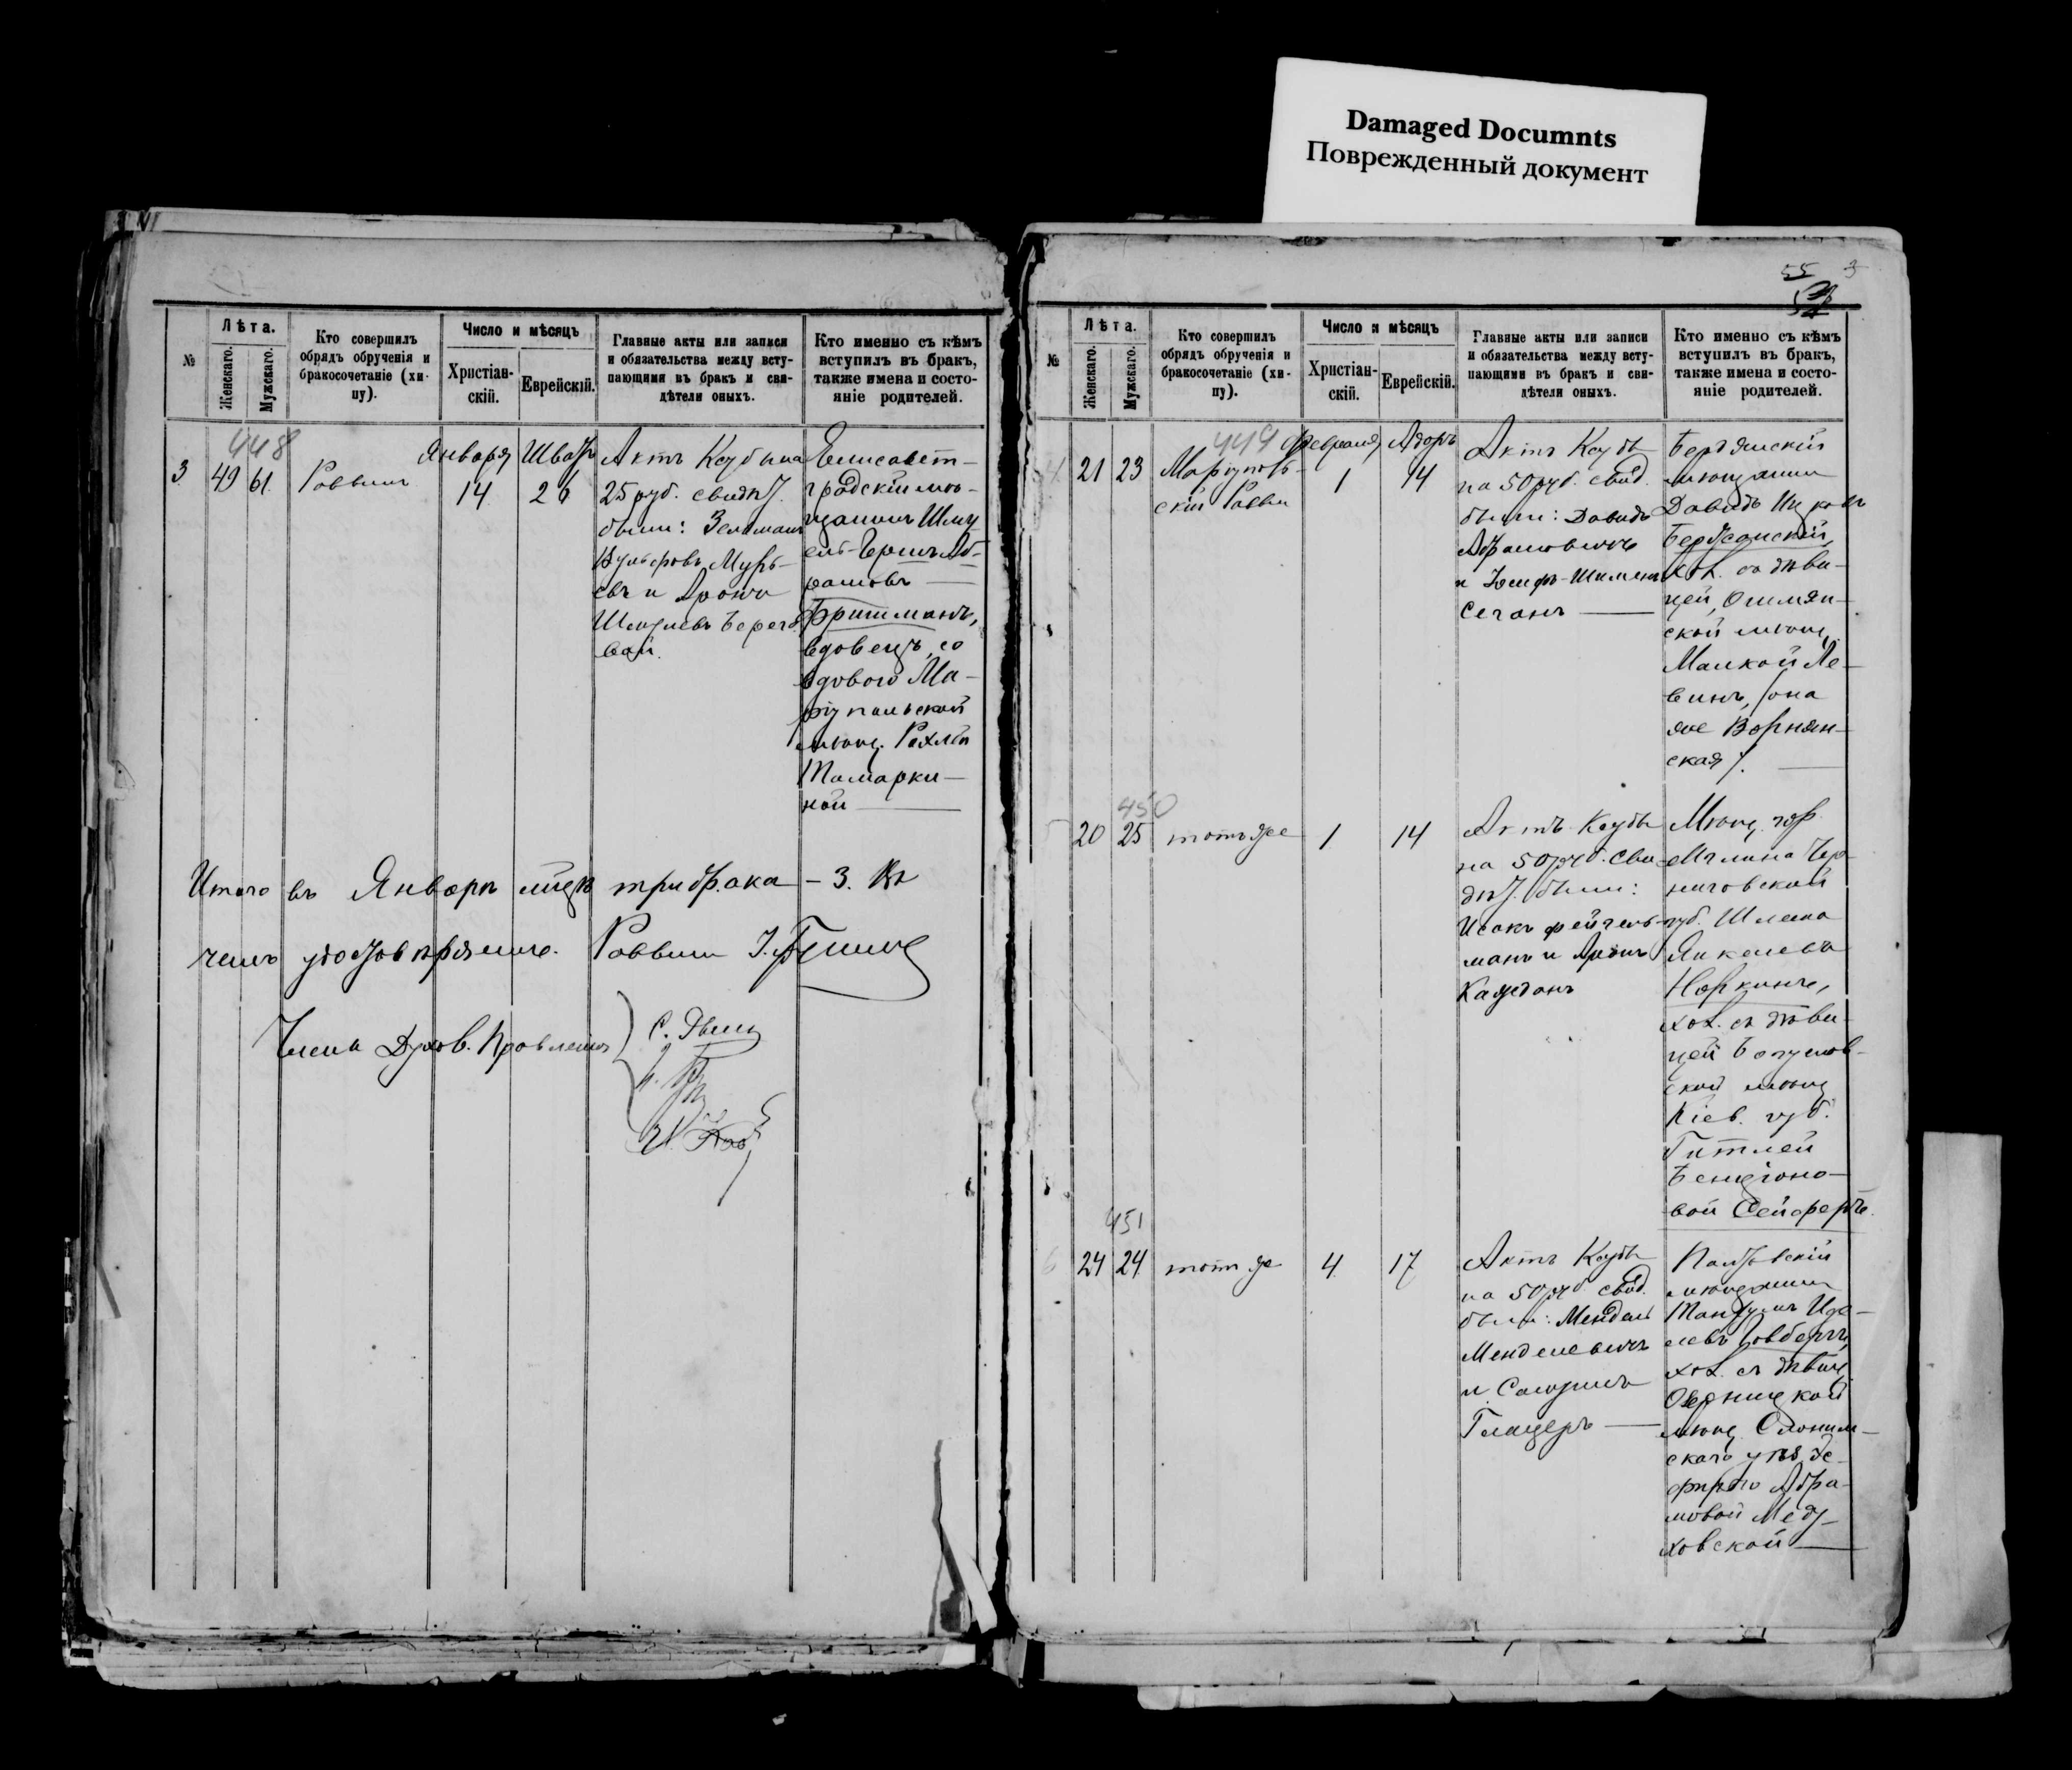 Damaged Documnts
Поврежденный документ
№
Лѣта.
Женскаго.
Мужскаго.
Кто совершилъ
обрядъ обрученія и
бракосочетаніе (хи-
пу).
Число и мѣсяцъ
Христіан-
скій.
Еврейскій.
Главные акты или записи
и обязательства между всту-
пающими въ бракъ и сви-
дѣтели оныхъ.
Кто именно съ кѣмъ
вступилъ въ бракъ,
также имена и состо-
яніе родителей.
448
3
49
61
Раввинъ
Января
14
Шватъ
26
Актъ Ксубы на
25 руб. свидѣт.
были: Зельманъ
Вульфовъ
и Аронъ
Шмулевъ Берего
вой.
Елисавет-
градскій мѣ-
щанинъ Шму
ель-Гершъ Аб-
рамовъ
Фришманъ,
вдовецъ, со
вдовою Ма-
ріупольской
мѣщ. Рахлей
Тамарки-
ной
Итого въ Январѣ м-цѣ три брака - 3. въ
чемъ удостовѣряемъ. Раввинъ
Члены Духов. Правленія
55 3
№
Лѣта.
Женскаго.
Мужскаго.
Кто совершилъ
обрядъ обрученія и
бракосочетаніе (хи-
пу).
Число и мѣсяцъ
Христіан-
скій.
Еврейскій.
Главные акты или записи
и обязательства между всту-
пающими въ бракъ и сви-
дѣтели оныхъ.
Кто именно съ кѣмъ
вступилъ въ бракъ,
также имена и состо-
яніе родителей.
449
4
21
23
Маріуполь-
скій Раввин
Февраля
1
Адаръ
14
Актъ Ксубы
на 50 руб. свид.
были: Давидъ
Абрамовичъ
и Іосифъ-Шимонъ
Сеганъ
Бердянскій
мѣщанинъ
Давидъ Ицковъ
хол. съ дѣви-
цей, Ошмян-
ской мѣщ.
Малкой Ле-
винъ, (она
же Ворнян-
ская).
450
5
20
25
тотъ же
1
14
Актъ Ксубы
на 50 руб. Сви-
дѣт. были:
Исакъ Фейгель-
манъ и Аронъ
Каждонъ
Мѣщ. гор.
Мглина Чер-
ниговской
губ. Шлема
Янкелевъ
Норкинъ,
хол. съ дѣви-
цей Богуслав-
ской мѣщ.
Кіев. губ.
Гитлей
Бенціоно-
вой Сейфертъ.
451
6
24
24
тотъ же
4
17
Актъ Ксубы
на 50 руб. свид.
были: Мендель
Менделевичъ
и Самуилъ
Глацеръ
мѣщанинъ
Танхумъ Иде-
левъ
хол. съ дѣвиц.
мѣщ. Слоним-
скаго уѣз. Эс-
фирью Абра-
мовой Мед-
ховской